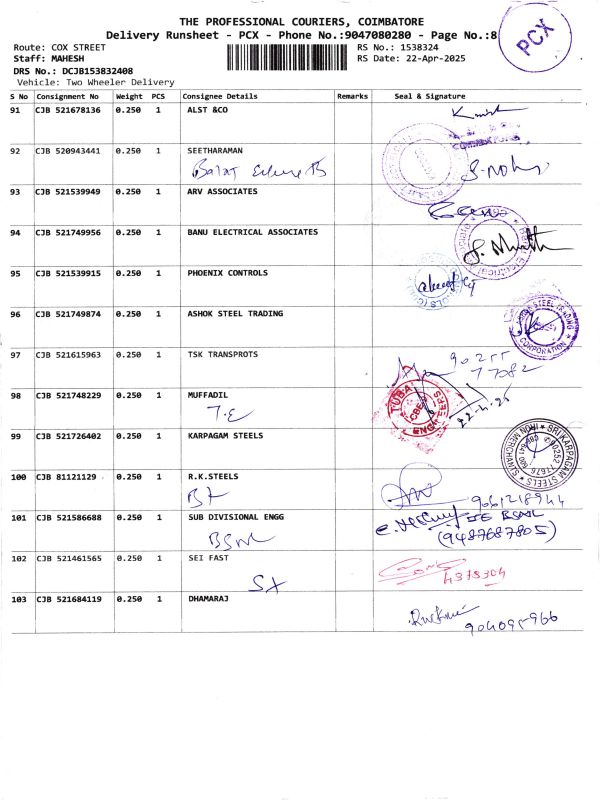 THE PROFESSIONAL COURIERS, COIMBATORE
Delivery Runsheet - PCX - Phone No.:9047080280 - Page No.:8
PCX
Route: COX STREET
RS No.: 1538324
Staff: MAHESH
RS Date: 22-Apr-2025
DRS No.: DCJB153832408
Vehicle: Two Wheeler Delivery
S No Consignment No Weight PCS Consignee Details Remarks Seal & Signature
91 CJB 521678136 0.250 1 ALST &CO
92 CJB 520943441 0.250 1 SEETHARAMAN
93 CJB 521539949 0.250 1 ARV ASSOCIATES
94 CJB 521749956 0.250 1 BANU ELECTRICAL ASSOCIATES
95 CJB 521539915 0.250 1 PHOENIX CONTROLS
96 CJB 521749874 0.250 1 ASHOK STEEL TRADING
STEEL TRADING
CORPORATION
97 CJB 521615963 0.250 1 TSK TRANSPROTS
90255
77082
98 CJB 521748229 0.250 1 MUFFADIL
T.E
TUBA
CBE
ENGINEERS
22.4.25
99 CJB 521726402 0.250 1 KARPAGAM STEELS
SRI KARPAGAM STEELS
IRON MERCHANTS
100 CJB 81121129 0.250 1 R.K.STEELS
101 CJB 521586688 0.250 1 SUB DIVISIONAL ENGG
BSNL
BSNL
(9487687805)
102 CJB 521461565 0.250 1 SEI FAST
103 CJB 521684119 0.250 1 DHAMARAJ